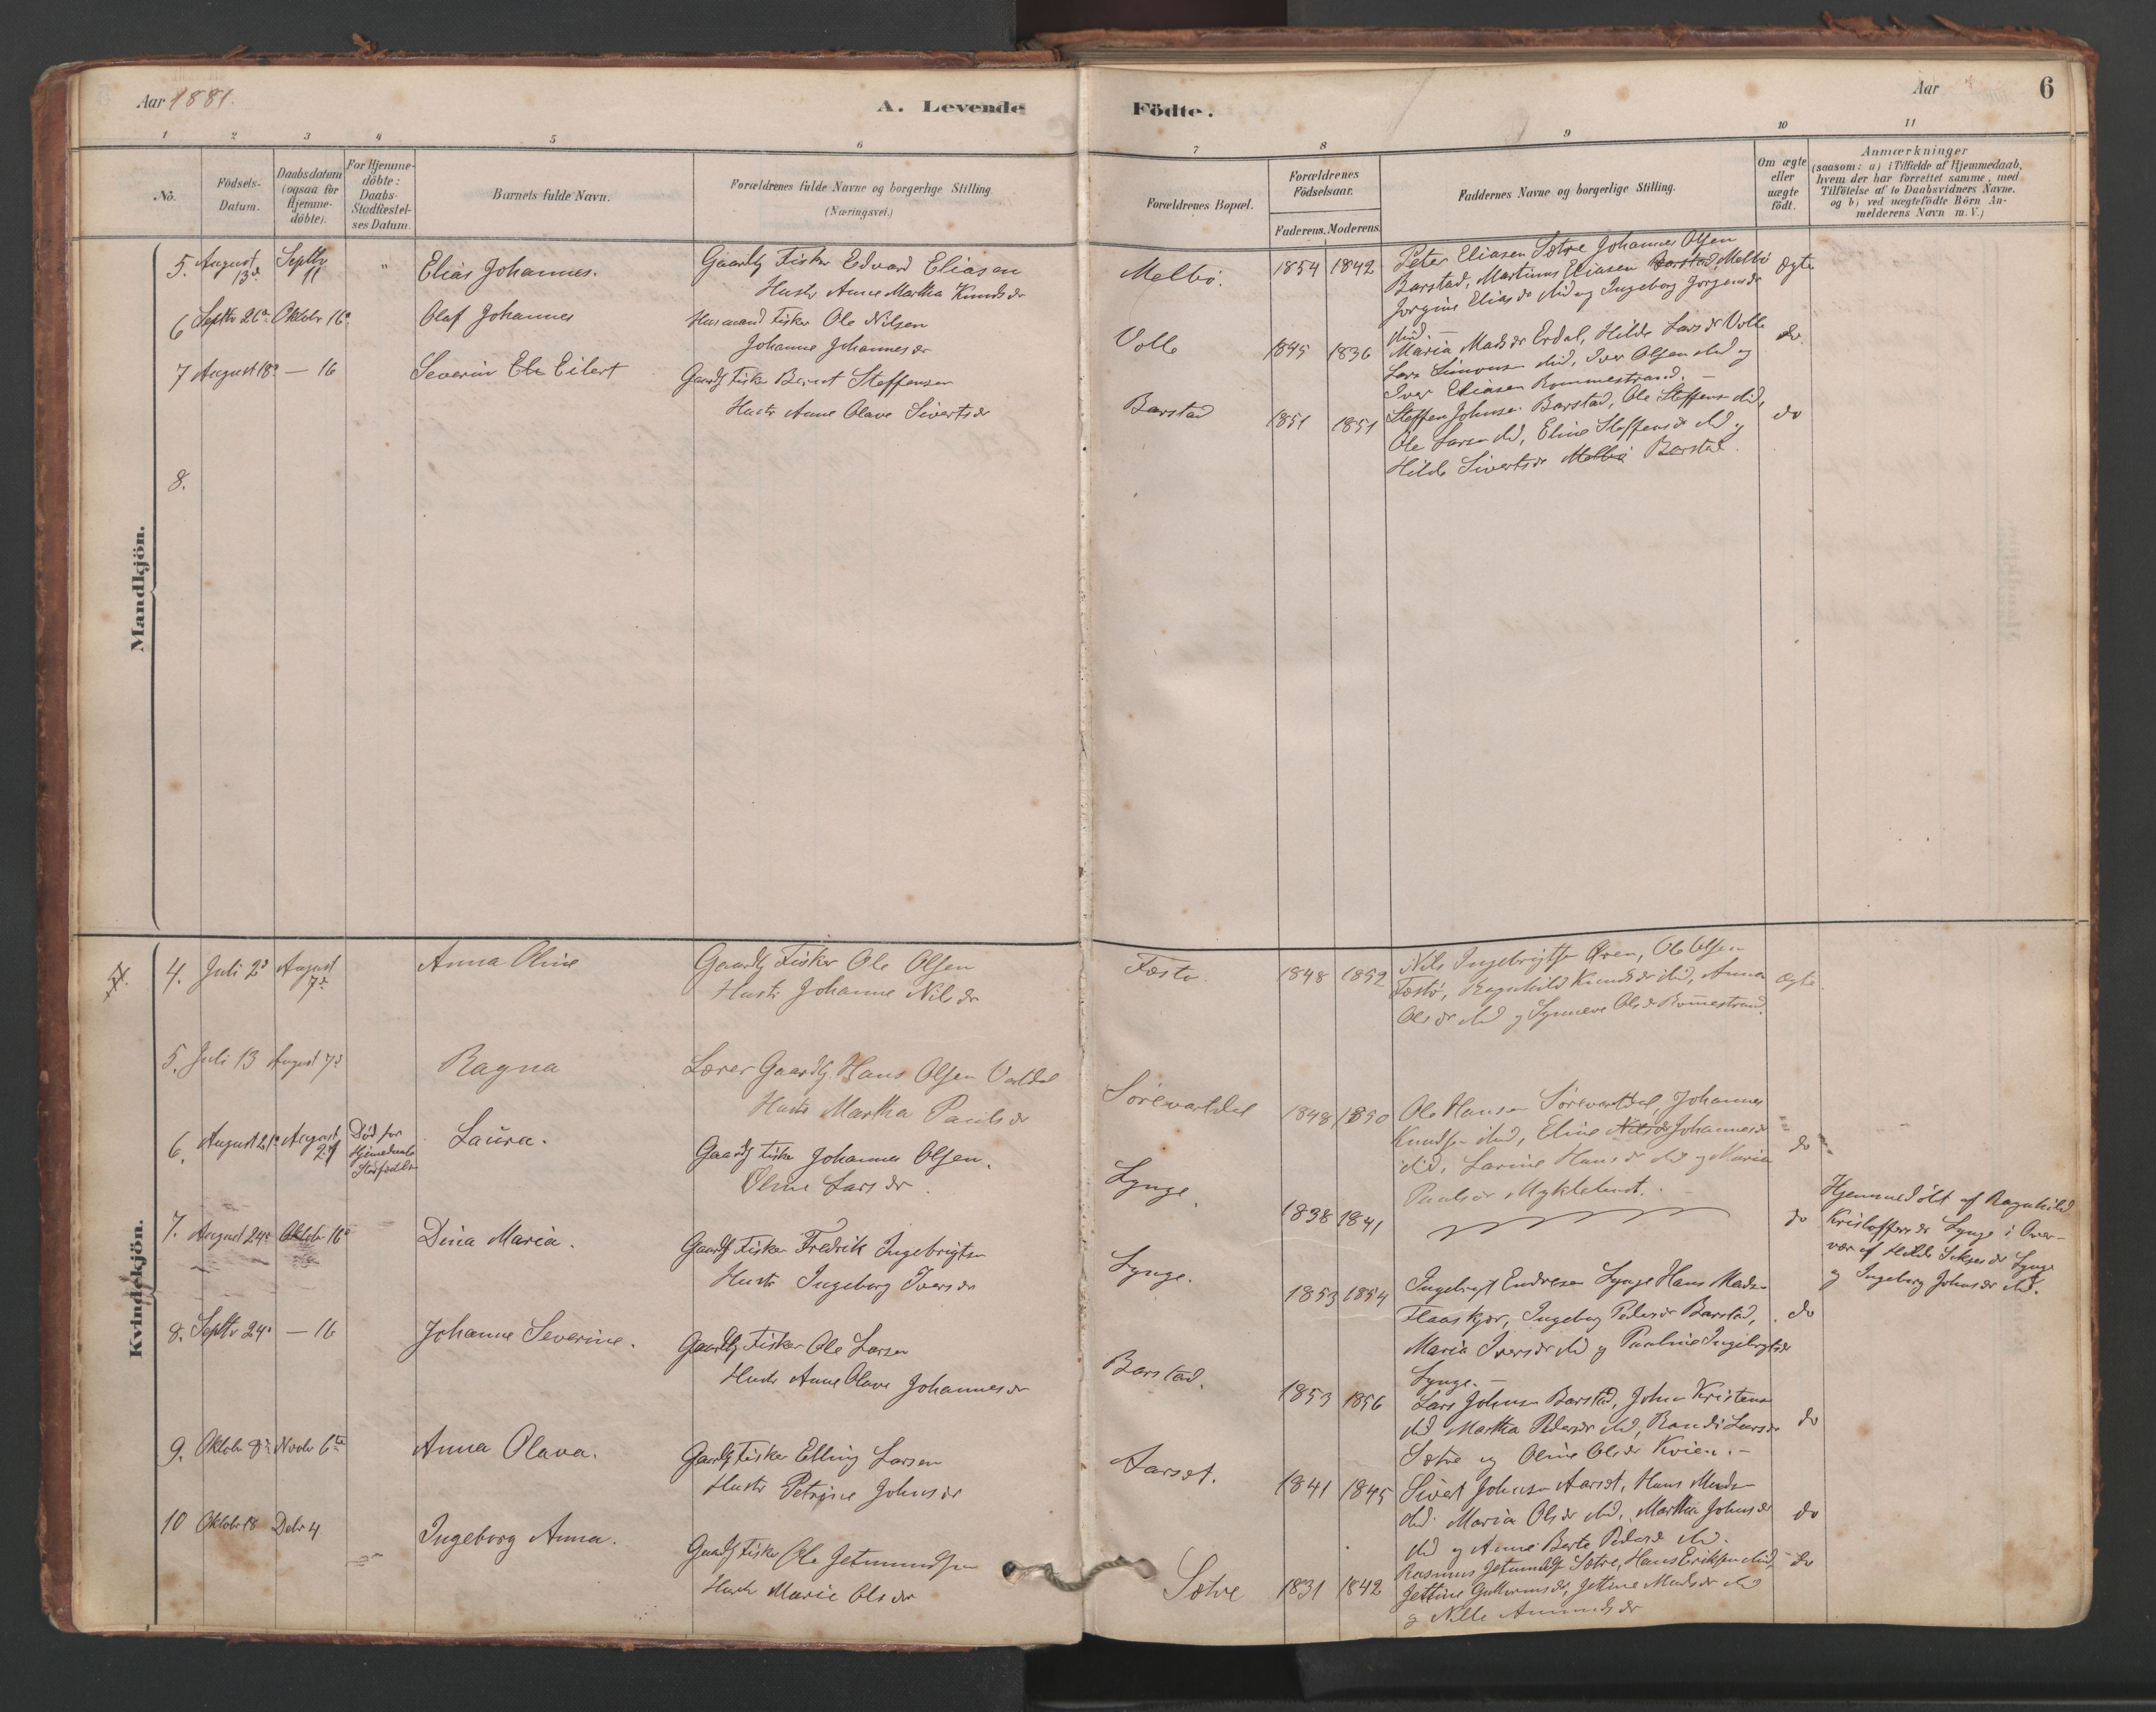 Aar 1881.
A. Levende
Födte.
Aar
6
1 2 3 4 5 6 7 8 9 10 11
No.
Födsels-
Datum.
Daabsdatum
(ogsaa for
Hjemme-
döbte).
For Hjemme-
döbte:
Daabs-
Stadfæstel-
ses Datum.
Barnets fulde Navn.
Forældrenes fulde Navne og borgerlige Stilling
(Næringsvei.)
Forældrenes Bopæl.
Forældrenes
Födselsaar.
Faderens. Moderens.
Faddernes Navne og borgerlige Stilling.
Om ægte
eller
uægte
födt.
Anmærkninger
(saasom: a) i Tilfælde af Hjemmedaab,
hvem der har forrettet samme, med
Tilföielse af to Daabsvidners Navne,
og b) ved uægtefödte Börn An-
melderens Navn m. V.)
Mandkjön.
5. August 13de Septbr 11 " Elias Johannes. Gaardbg Fisker Edvard Eliasen
Hustr Anne Martha Knudsdr
Melbö. 1854 1842 Peter Eliasen Sætre Johannes Olsen
Barstad, Martinus Eliasen Barstad, Melbö
Jorgine Eliasdr ibid og Ingeborg Jorgensdr
ibid. ægte
6 Septbr 26de Oktobr 16de Olaf Johannes Husmand Fisker Ole Nilsen
Johanne Johannesdr
Volle 1845 1836 Maria Madsdr Erdal, Hilde Larsdr Volle
Lars Simonsen ibid, Iver Olsen ibid og
Iver Eliasen Rommestrand. do
7 August 18de — 16 Severin Ele Eilert Gaardbg Fisker Bernt Steffensen
Hustr Anne Olave Sivertsdr
Barstad 1851 1851 Steffen Johnsen Barstad, Ole Steffensen ibid,
Ole Larsen ibid, Eline Steffensdr ibid og
Hilde Sivertsdr Melbö Barstad. do
8.
Kvindekjön.
4. Juli 2d August 7de Anna Oline Gaardbg Fisker Ole Olsen
Hustr Johanne Nilsdr
Fæstö 1848 1852 Nils Ingebrigtsen Øren, Ole Olsen
Fæstö, Ragnhild Knudsdr ibid, Anna
Olsdr ibid og Synneve Olsdr Rommestrand. Ægte
5. Juli 13 August 7de Ragna Lærer Gaardbg Hans Olsen Vartdal
Hustr Martha Paulsdr
Sörevartdal 1848 1850 Ole Hansen Sörevartdal, Johannes
Knudsen ibid, Eline Nilsdr Johannesdr
ibid, Larine Hansdr ibid og Maria
Paulsdr Myklebust. do
6. August 21de August 27 Död for
Hjemmedaabs
Stadfæstelse Laura. Gaardbg Fisker Johannes Olsen.
Oline Larsdr
Lynge. 1838 1841 do
Hjemmedöbt af Ragnhild
Kristoffersdr Lynge i Over-
vær af Hilde Lynge
og Ingeborg Johnsdr ibid.
7. August 24de Oktobr 16de Dina Maria. Gaardbg Fisker Fredrik Ingebrigtsen
Hustr Ingeborg Iversdr
Lynge. 1853 1854 Ingebrigt Endresen Lynge Hans Madsen
Flaaskjær, Ingeborg Pedersdr Barstad,
Maria Iversdr ibid og Pauline Ingebrigtsdr
Lynge. — do
8. Septbr 24de — 16 Johanne Severine. Gaardbg Fisker Ole Larsen
Hustr Anne Olave Johannesdr
Barstad. 1853 1856 Lars Johnsen Barstad, John Kristensen
ibid Martha Pedersdr ibid, Randi Larsdr
Sætre og Oline Olsdr Kvien. — do
9. Oktobr 8de Novbr 6te Anna Olava. Gaardbg Fisker Elling Larsen
Hustr Petrine Johnsdr
Aarset. 1841 1845 Sivert Johnsen Aarset, Hans Madsen
ibid. Maria Olsdr ibid, Martha Johnsdr
ibid og Anne Berte Pedersdr ibid. do
10 Oktobr 18 Debr 4 Ingeborg Anna. Gaardbg Fisker Ole Jetmundsen
Hustr Marie Olsdr
Sætre 1831 1842 Rasmus Jetmundsen Sætre, Hans Eriksen ibid,
Jettine Guttormsdr, Jettine Madsdr ibid
og Nille Amundsdr do